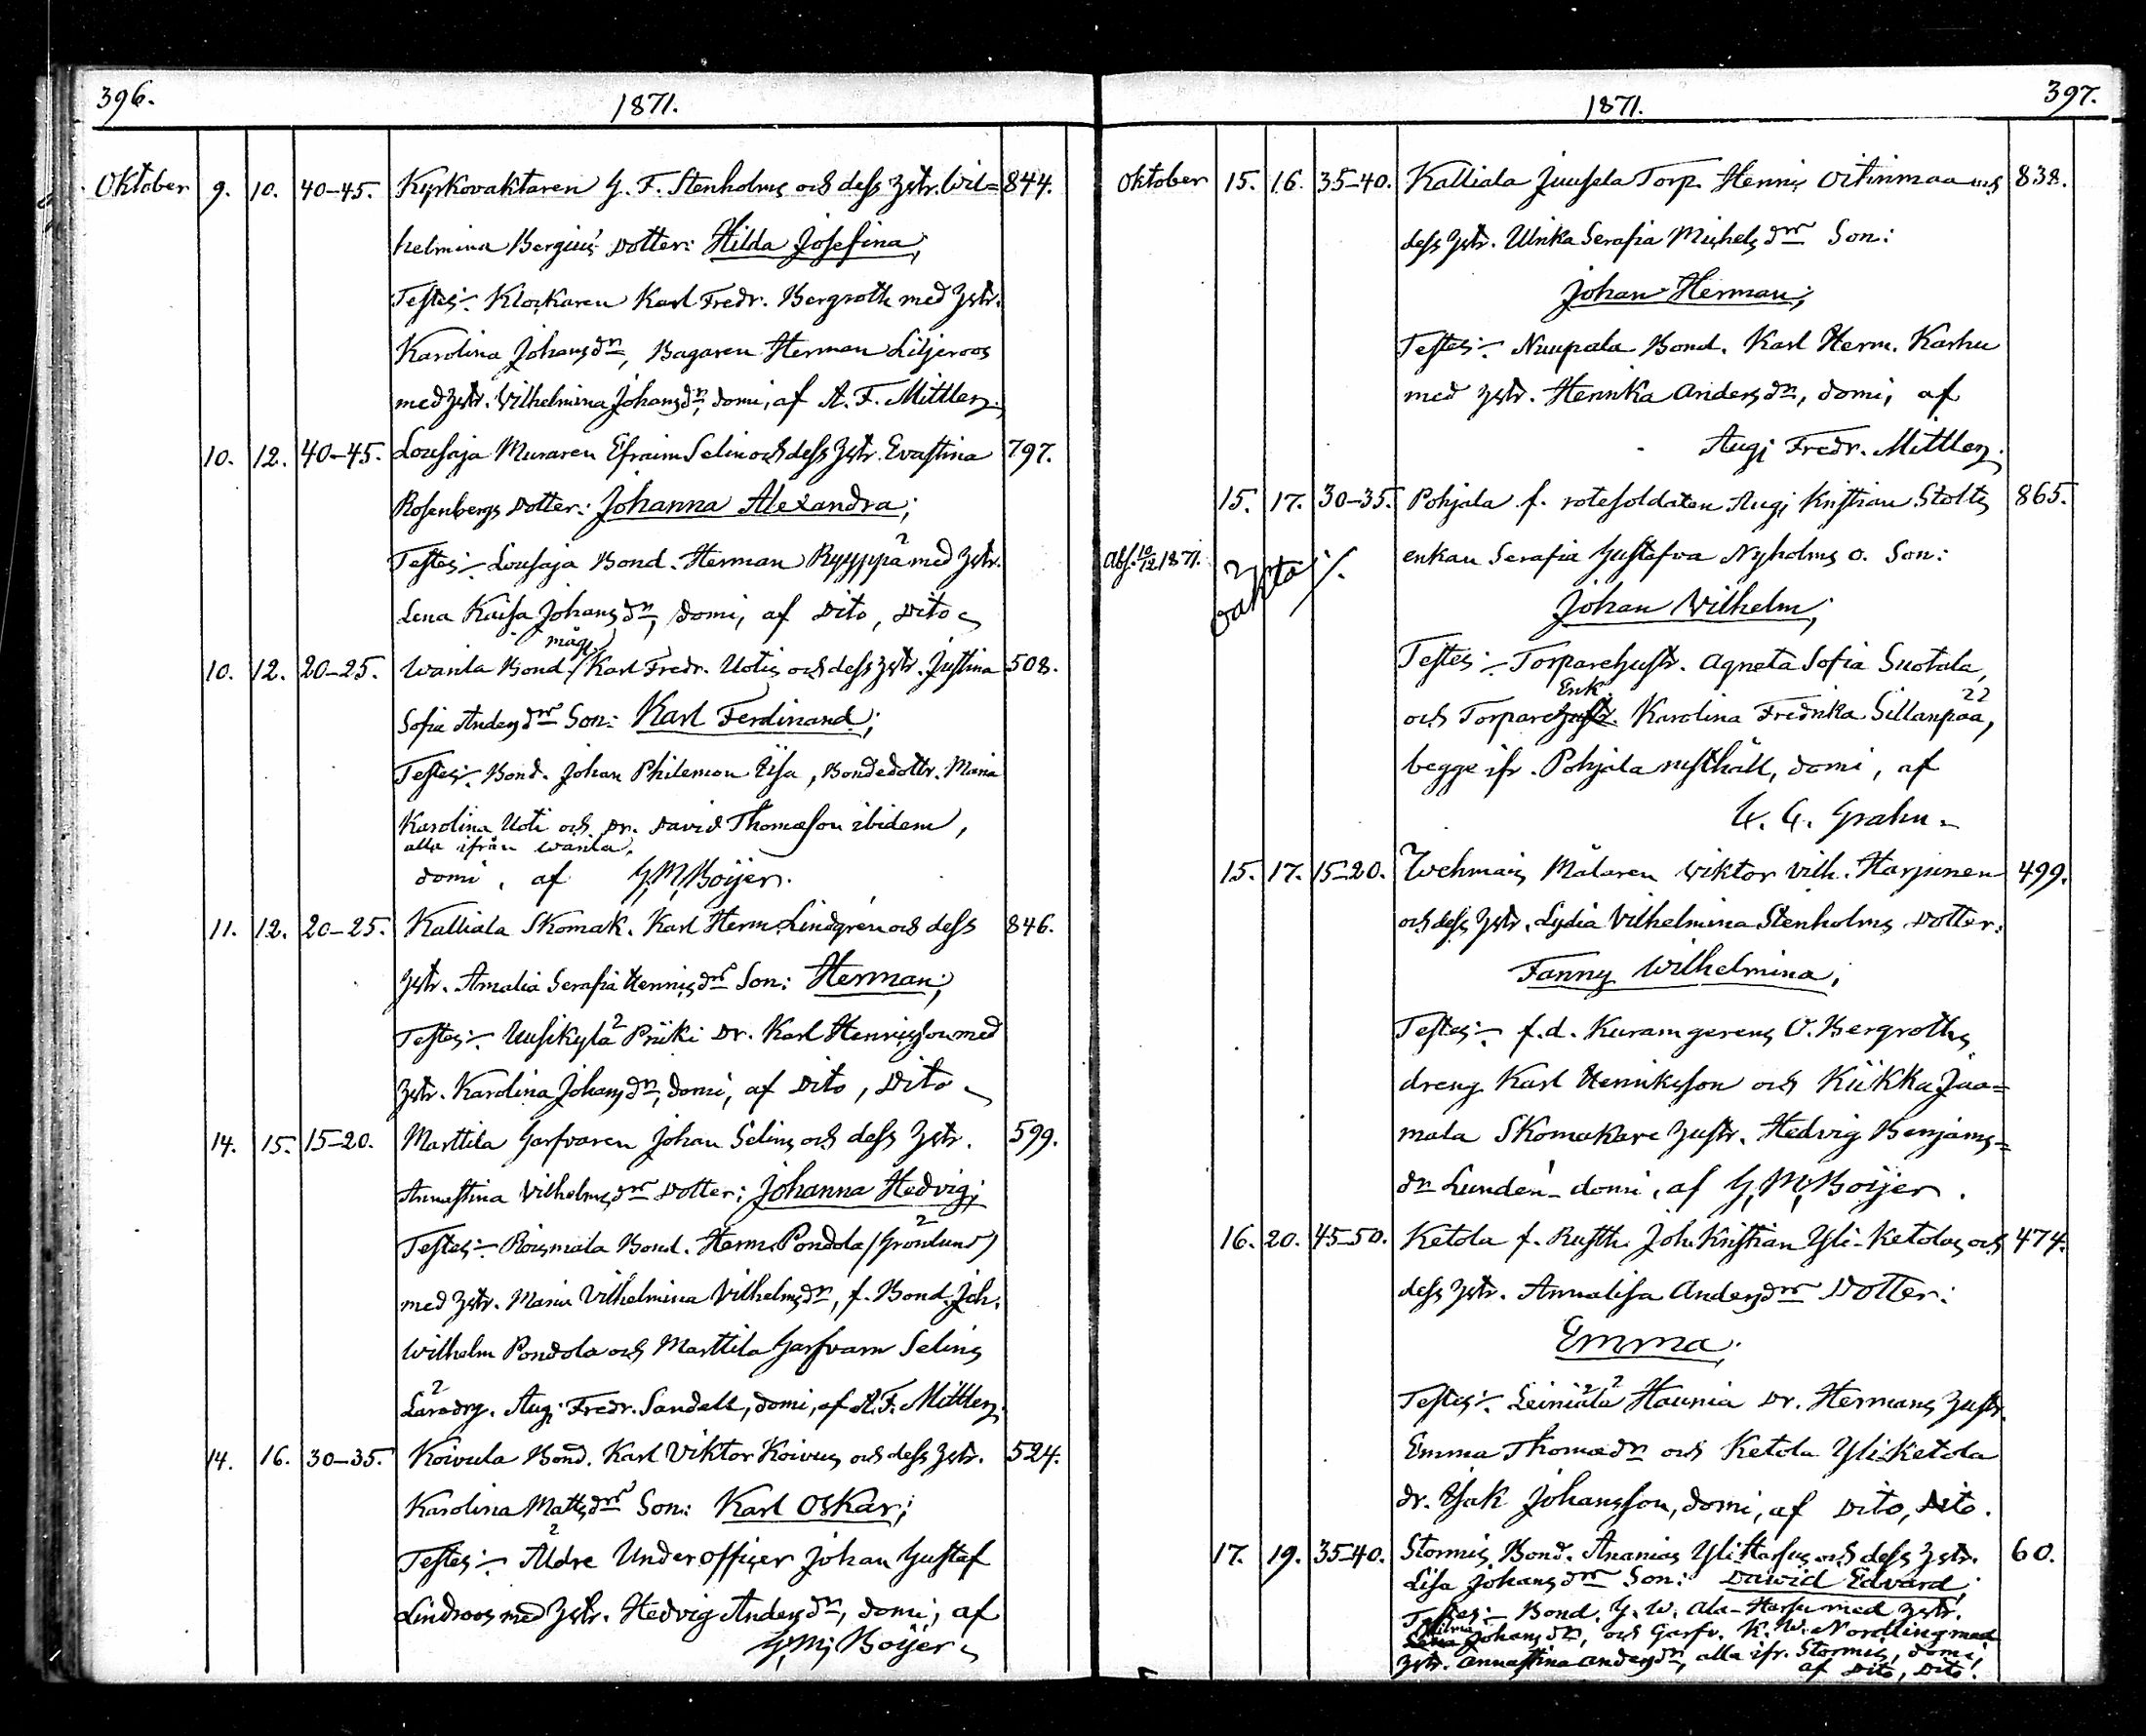 396.
1871.
Oktober 9. 10. 40-45. Kyrkovaktaren G. F. Stenholms och dess hstr. Wil= 844.
helmina Bergius' Dotter: Hilda Josefina;
Testes:- Klockaren Karl Fredr. Bergroth med hstr.
Karolina Johansdr, Bagaren Herman Liljeroos
med hstr. Vilhelmina Johansdr, domi, af A. F. Mittler.
10. 12. 40-45. Lousaja Muraren Efraim Selin och dess hstr. Evastina 797.
Rosenbergs Dotter: Johanna Alexandra;
Testes:- Lousaja Bond. Herman Ryyppä med hstr.
Lena Kaisa Johansdr, domi, af Dito, Dito
måg
10. 12. 20-25. Wanila Bond. Karl Fredr. Uotis och dess hstr. Justina 508.
Sofia Andersdrs Son: Karl Ferdinand;
Testes:- Bond. Johan Philemon Eisa, Bondedottr. Maria
Karolina Uoti och Dr. David Thomasson ibidem,
alla ifrån Wanila,
domi, af G. M. Boijer.
11. 12. 20-25. Kalliala Skomak. Karl Herm. Lindgrén och dess 846.
hstr. Amalia Serafia Henricsdrs Son: Herman;
Testes:- Uusikylä Priiki Dr. Karl Henricsson med
hstr. Karolina Johansdr, domi, af Dito, Dito
14. 15. 15-20. Marttila Garfvaren Johan Selins och dess hstr. 599.
Annastina Vilhelmsdrs Dotter: Johanna Hedvig;
Testes:- Roismala Bond. Herm. Pondola (Grönlund)
med hstr. Maria Vilhelmina Vilhelmsdr, f. Bond. Joh.
Wilhelm Pondola och Marttila Garfvarn Selins
Lärodrg. Aug. Fredr. Sandell, domi, af A. F. Mittler.
14. 16. 30-35. Koivula Bond. Karl Viktor Koivus och dess hstr. 524.
Karolina Mattsdrs Son: Karl Oskar;
Testes:- Äldre Underofficer Johan Gustaf
Lindroos med hstr. Hedvig Andersdr, domi, af
G. M. Boijer
397.
1871.
Oktober 15. 16. 35-40. Kalliala Juusela Torp. Henric Vitinmaa och 838.
dess hstr. Ulrika Serafia Michelsdrs Son:
Johan Herman;
Testes:- Nuupala Bond. Karl Herm. Karhu
med hstr. Henrika Andersdr, domi, af
Aug. Fredr. Mittler.
15. 17. 30-35. Pohjala f. rotesoldaten Aug. Kristian Stolts 865.
Abs. 10/12 1871. oäkta /. enkan Serafia Gustafva Nyholms o. Son:
Johan Vilhelm;
Testes:- Torparehustr. Agneta Sofia Suotala,
Enk.
och Torparehustr. Karolina Fredrika Sillanpää,
begge ifr. Pohjala rusthåll, domi, af
G. G. Grahn
15. 17. 15-20. Wehmais Målaren Viktor Vilh. Harjunen 499.
och dess hstr. Lydia Vilhelmina Stenholms Dotter:
Fanny Wilhelmina;
Testes:- f.d. Kuramgerens O. Bergroths
dreng Karl Henriksson och Kiikka Jaa=
mala Skomakare hustr. Hedvig Benjams=
dr Lundén domi, af G. M. Boijer.
16. 20. 45-50. Ketola f. Rusth. Joh. Kristian Yli-Ketolas och 474.
dess hstr. Annalisa Andersdrs Dotter:
Emma;
Testes:- Leiniälä Haunia Dr. Hermans hustr.
Emma Thomædr och Ketola Yli-Ketola
dr. Isak Johansson, domi, af Dito, Dito.
17. 19. 35-40. Stormis Bond. Ananias Yli-Harsus och dess hstr. 60.
Lisa Johansdrs Son: David Edvard;
Testes:- Bond. G. W. Ala-Harsu med hstr.
Wilma
Lena Johansdr, och Garfv. K. W. Nordling med
hstr. Annastina Andersdr, alla ifr. Stormis, domi,
af Dito, Dito.